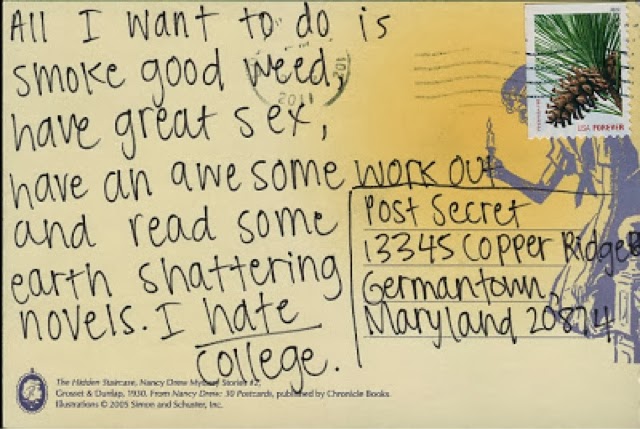 All I want to do is
smoke good weed,
have great sex,
have an awesome work out
and read some
earth shattering
novels. I hate
college.
Post Secret
13345 Copper Ridge
Germantown,
Maryland 20874
2011
USA FOREVER
The Hidden Staircase, Nancy Drew Mystery Stories #2,
Grosset & Dunlap, 1930. From Nancy Drew: 30 Postcards, published by Chronicle Books.
Illustrations © 2005 Simon and Schuster, Inc.